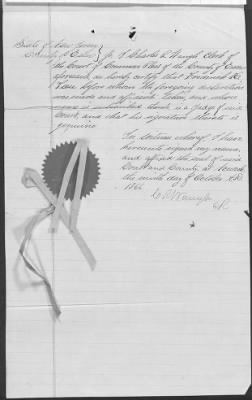 State of New Jersey
County of Essex } I, Charles A. Waugh Clerk of
the Court of Common Pleas of the County of Essex
aforesaid, do hereby certify that
before whom the foregoing
was made and
name is subscribed thereto is a Judge of said
Court, and that his signature thereto is
genuine
In testimony whereof I have
hereunto signed my name,
and affixed the seal of said
Court and County, at Newark
the ninth day of October A.D.
186
Waugh
Clk